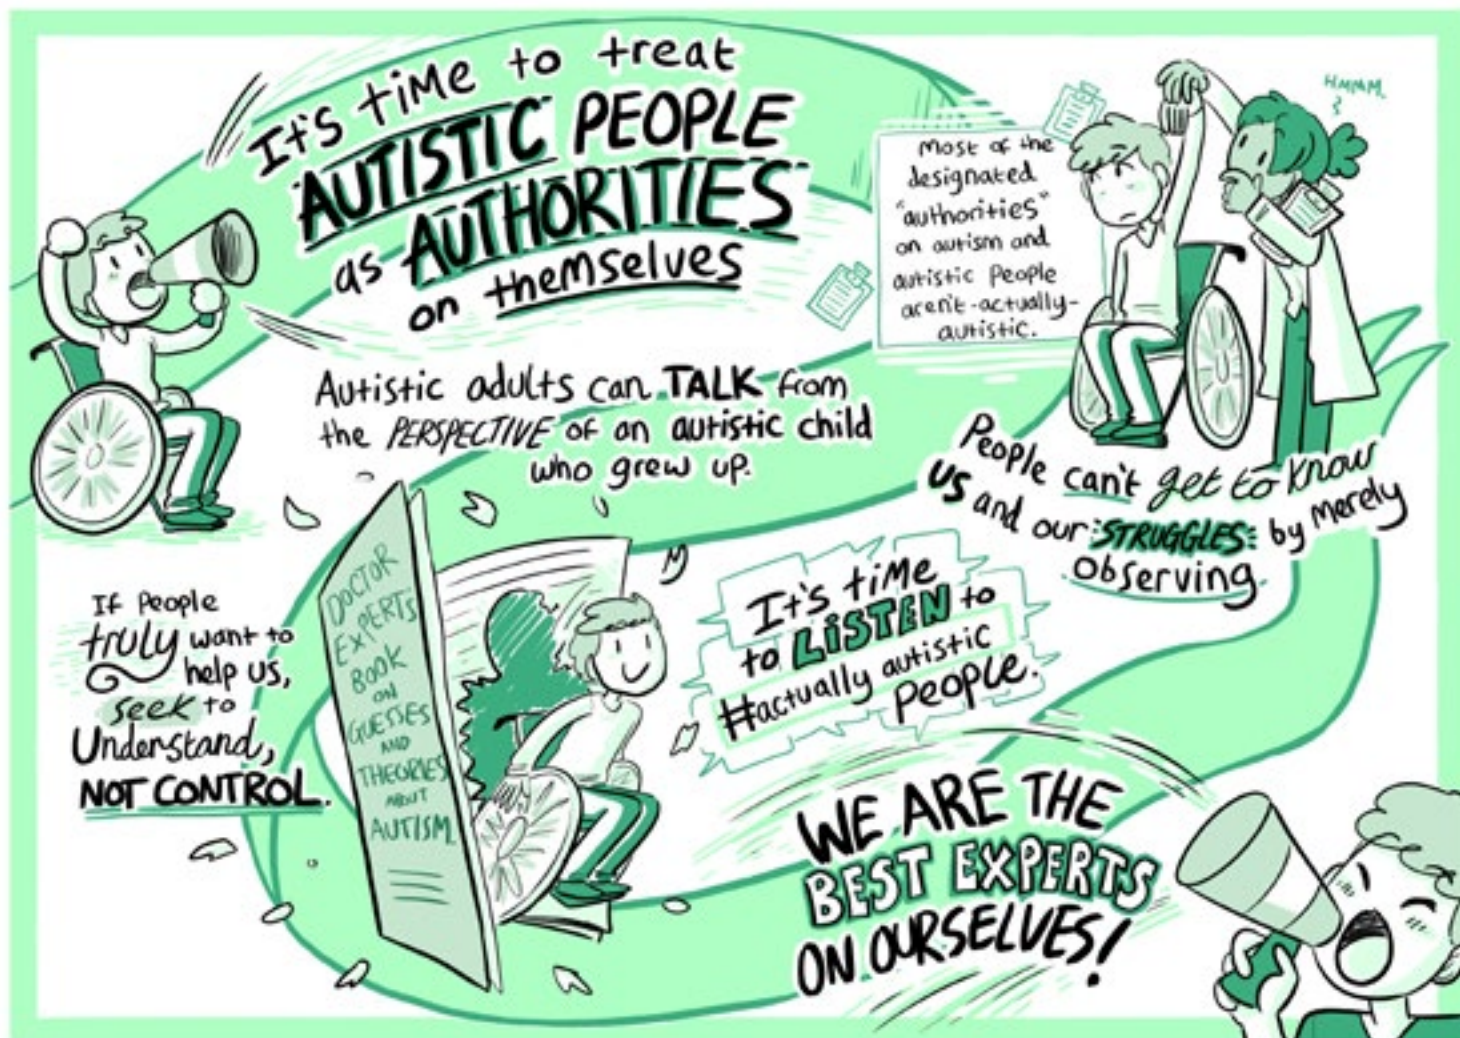 It's time to treat
AUTISTIC PEOPLE
as AUTHORITIES
on themselves
Most of the
designated
"authorities"
on autism and
autistic People
aren't-actually-
autistic.
HMMM.
Autistic adults can TALK from
the PERSPECTIVE of an autistic child
who grew up.
People can't get to know
us and our STRUGGLES by merely
observing.
If People
truly want to
help us,
seek to
Understand,
NOT CONTROL.
DOCTOR
EXPERTS
BOOK
ON
GUESSES
AND
THEORIES
ABOUT
AUTISM
It's time
to LISTEN to
#actually autistic
People.
WE ARE THE
BEST EXPERTS
ON OURSELVES!